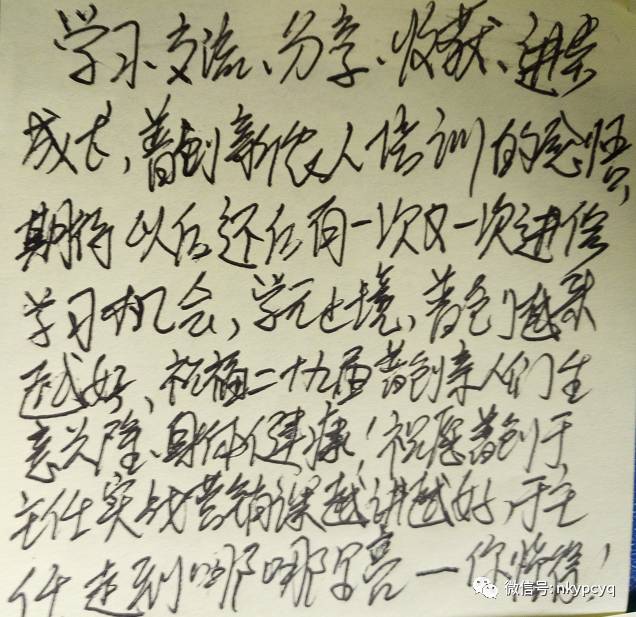 学习、交流、分享、收获、进步
成长,普创新农人培训的感悟,
期待以后还有一次又一次进修
学习机会,学无止境,普创越来
越好、祝福二十九届普创亲人们生
意兴隆、身体健康!祝愿普创于
主任实战营销课越讲越好,于主
任走到哪哪里亮一你
微信号:nkypcyq